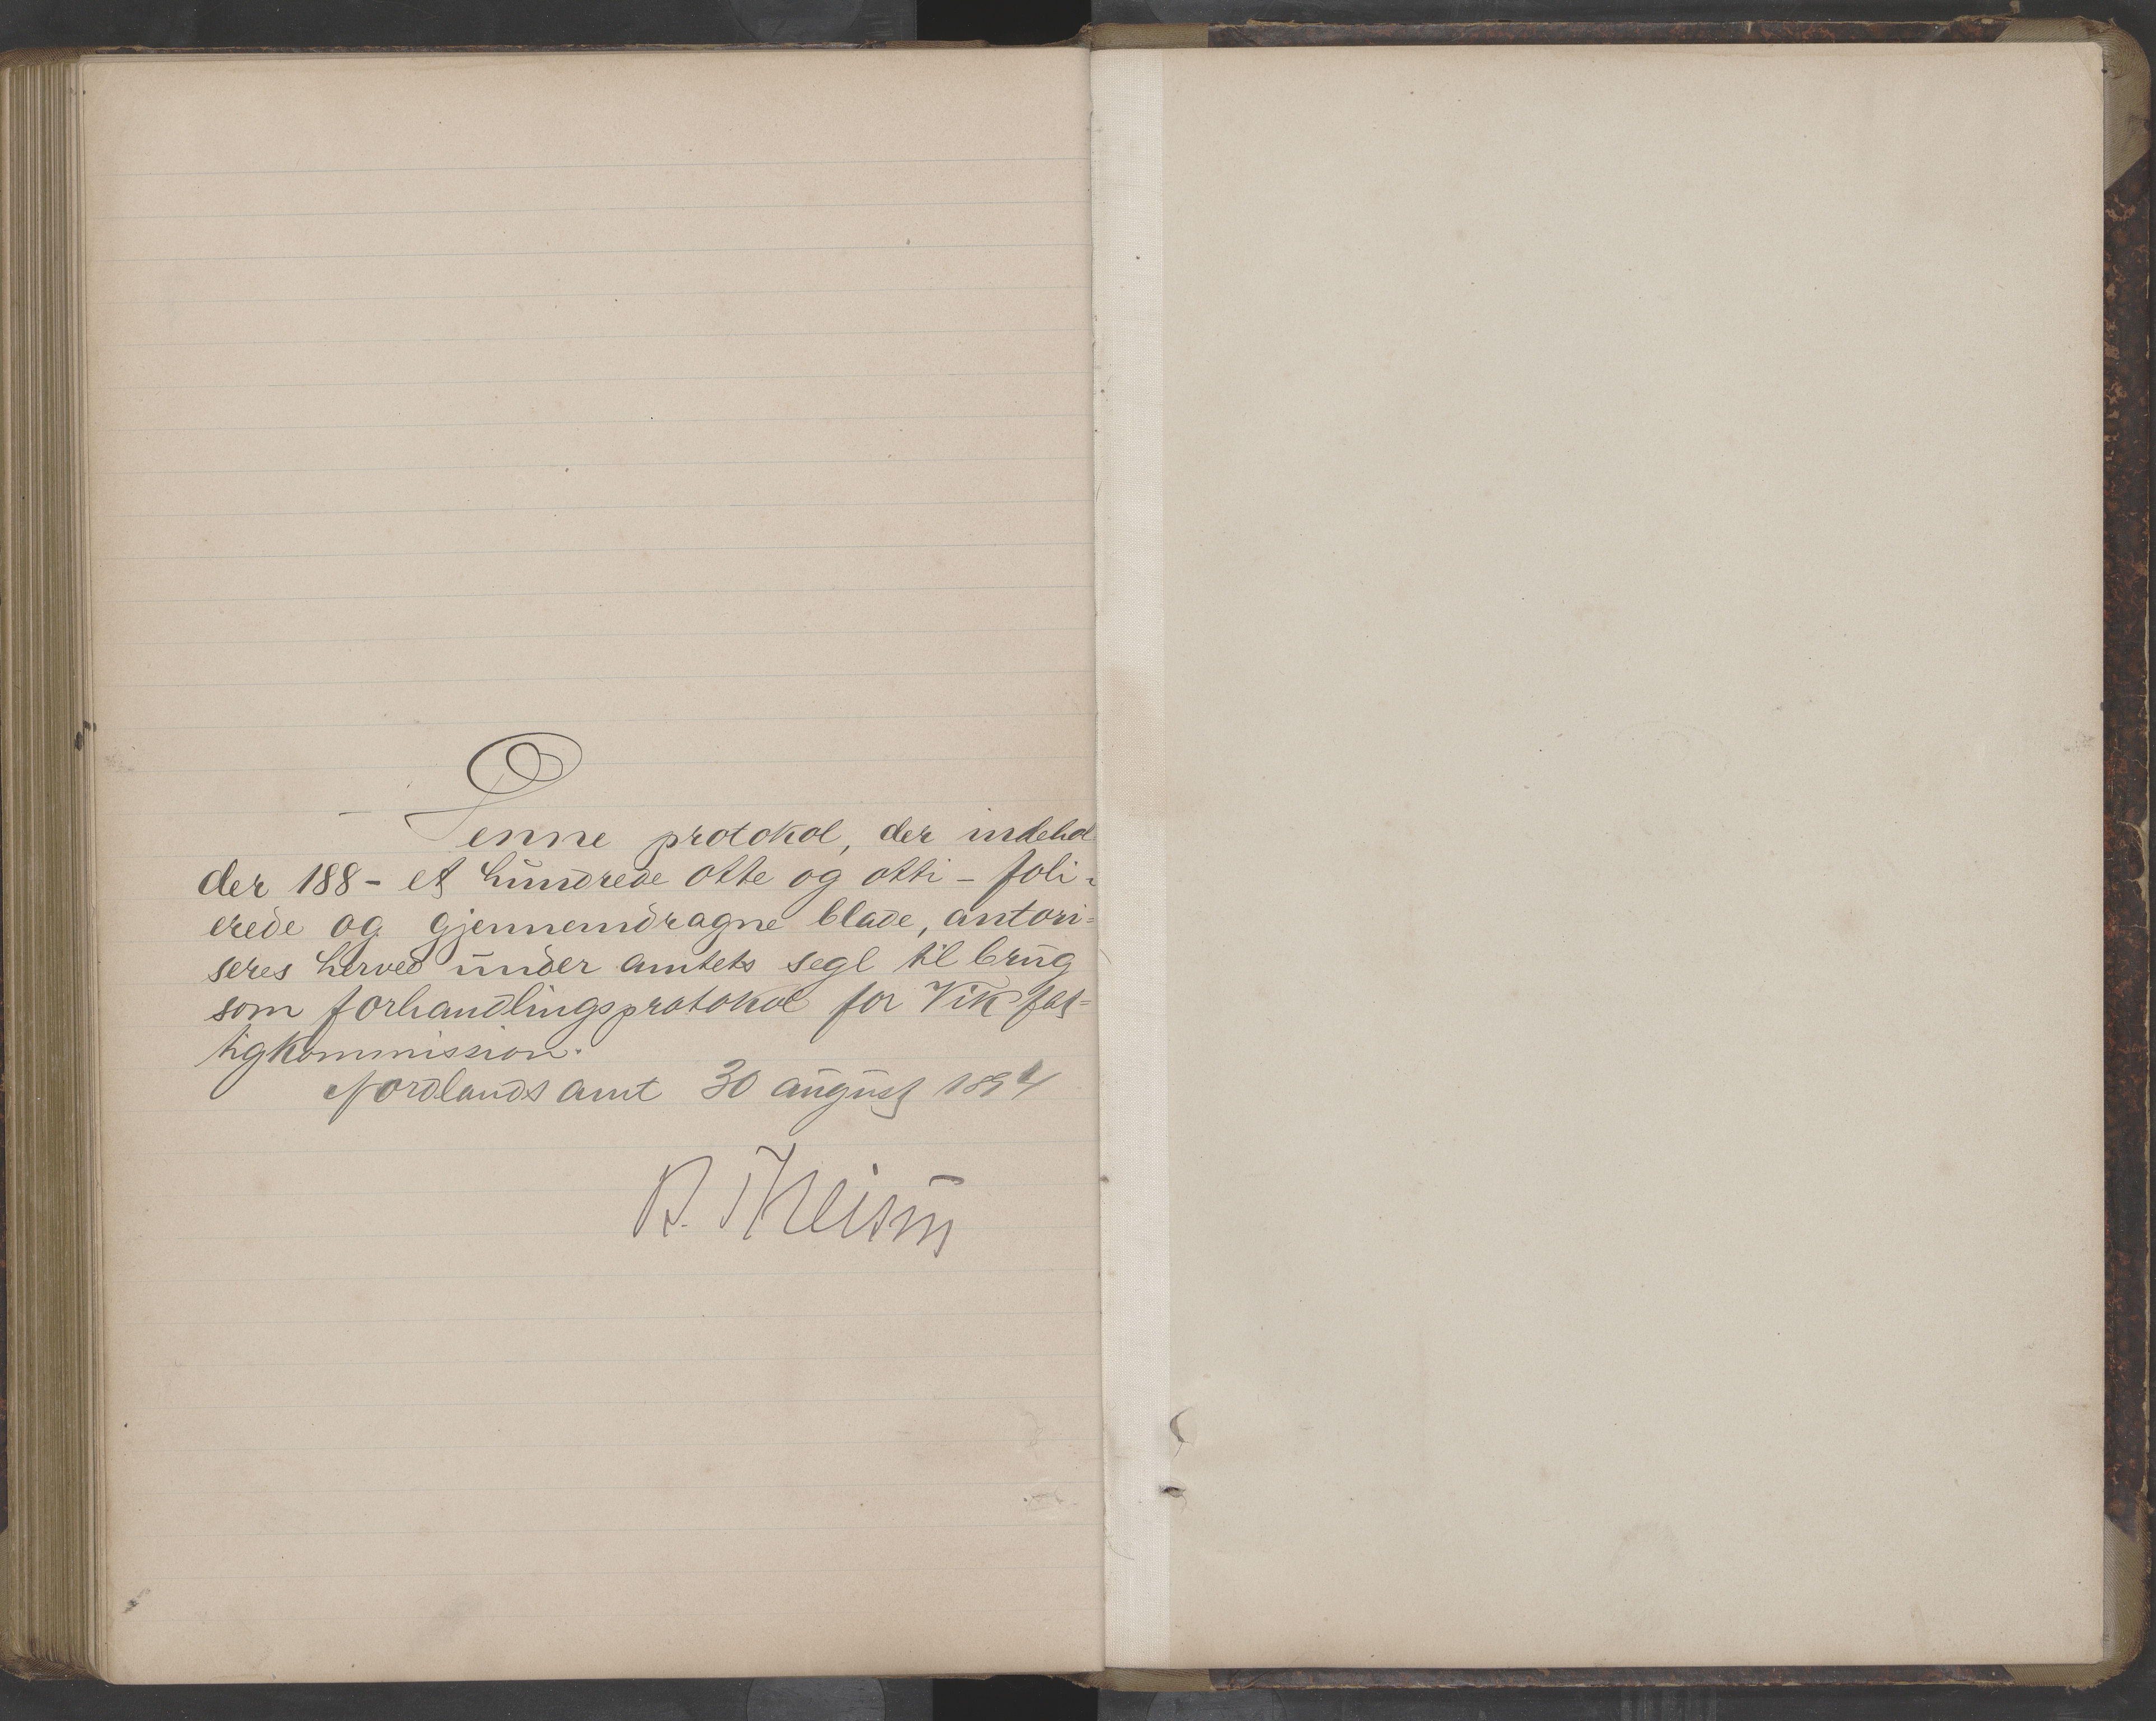 Denne protokol, der indehol
der 188 - et hundrede otte og otti - foli=
erede og gjennemdragne blade, autori=
seres herved under amtets segl til brug
som forhandlingsprotokol for Vik fat=
tigkommission.
Nordlands amt 30 august 1894
R. Theisen